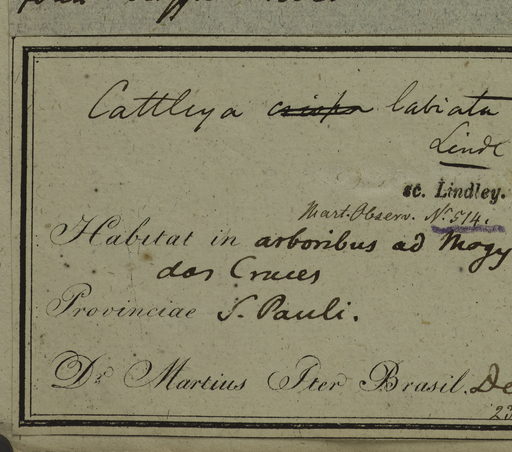 Cattleya crispa labiata
Lindl
sc. Lindley.
Mart. Observ. N. 514.
Habitat in arboribus ad Mogy
das Cruces
Provinciae S. Pauli.
Dr. Martius Iter Brasil. De
23